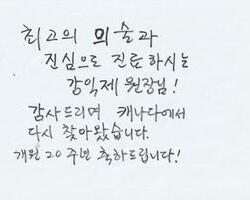 최고의 의술과
진심으로 진료하시는
강익제 원장님!
감사드리며 캐나다에서
다시 찾아왔습니다.
개원 20주년 축하드립니다!